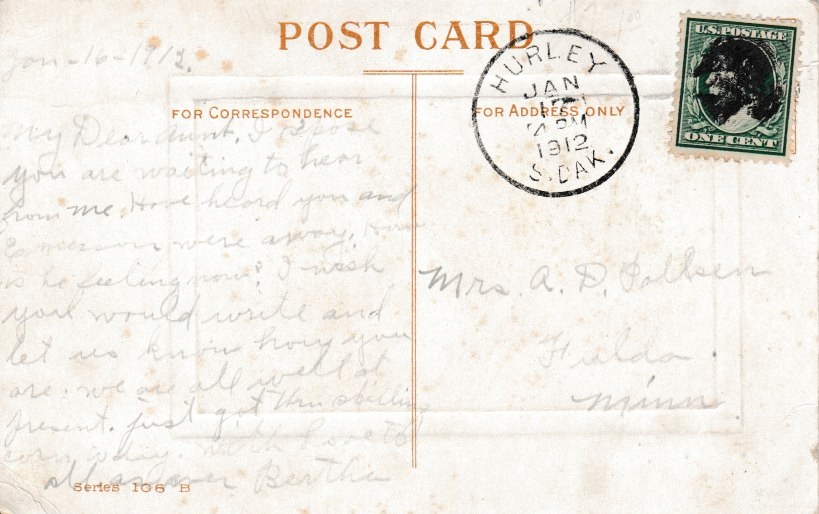 POST CARD
Jan-16-1912.
FOR CORRESPONDENCE
FOR ADDRESS ONLY
HURLEY
JAN
17
PM
1912
S. DAK.
U.S. POSTAGE
ONE CENT
My Dear aunt. I spose
you are waiting to hear
from me. Have heard you and
were away. How
is he feeling now? I wish
you would write and
let us know how you
are. we are all well at
present. just got thru shelling
corn today. with love to
all as ever Bertha
Mrs. A. D.
Fulda
Minn
Series 106 B